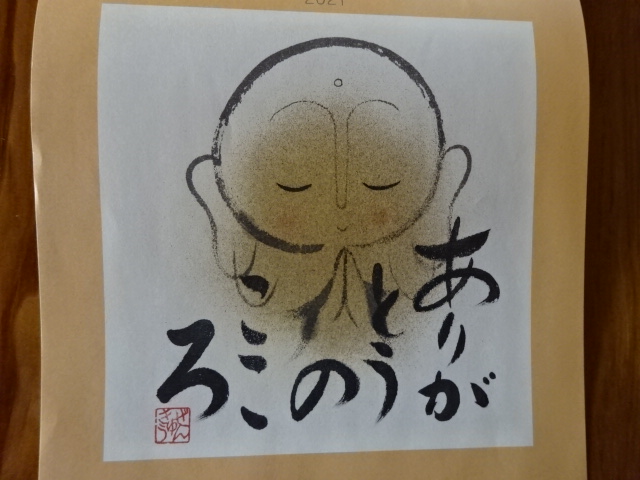 2021
ありが
とう
の
ここ
ろ